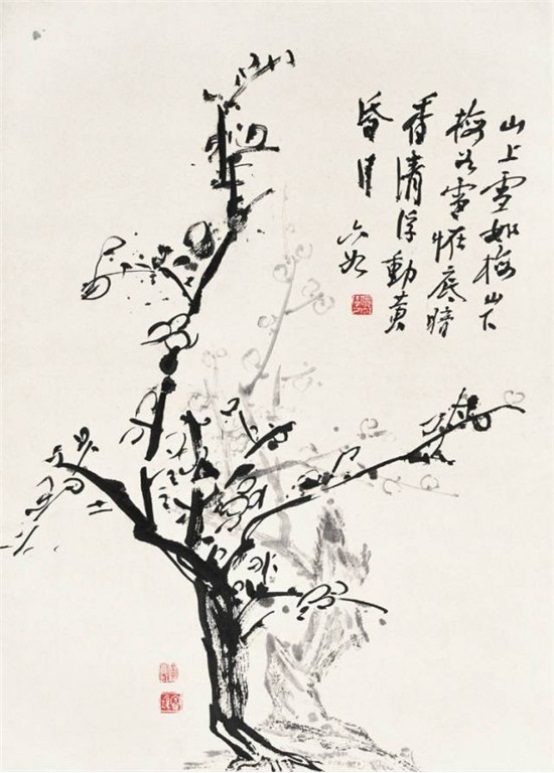 山上雪如梅山下
梅若雪怪底暗
香清浮動黃
昏月 六如